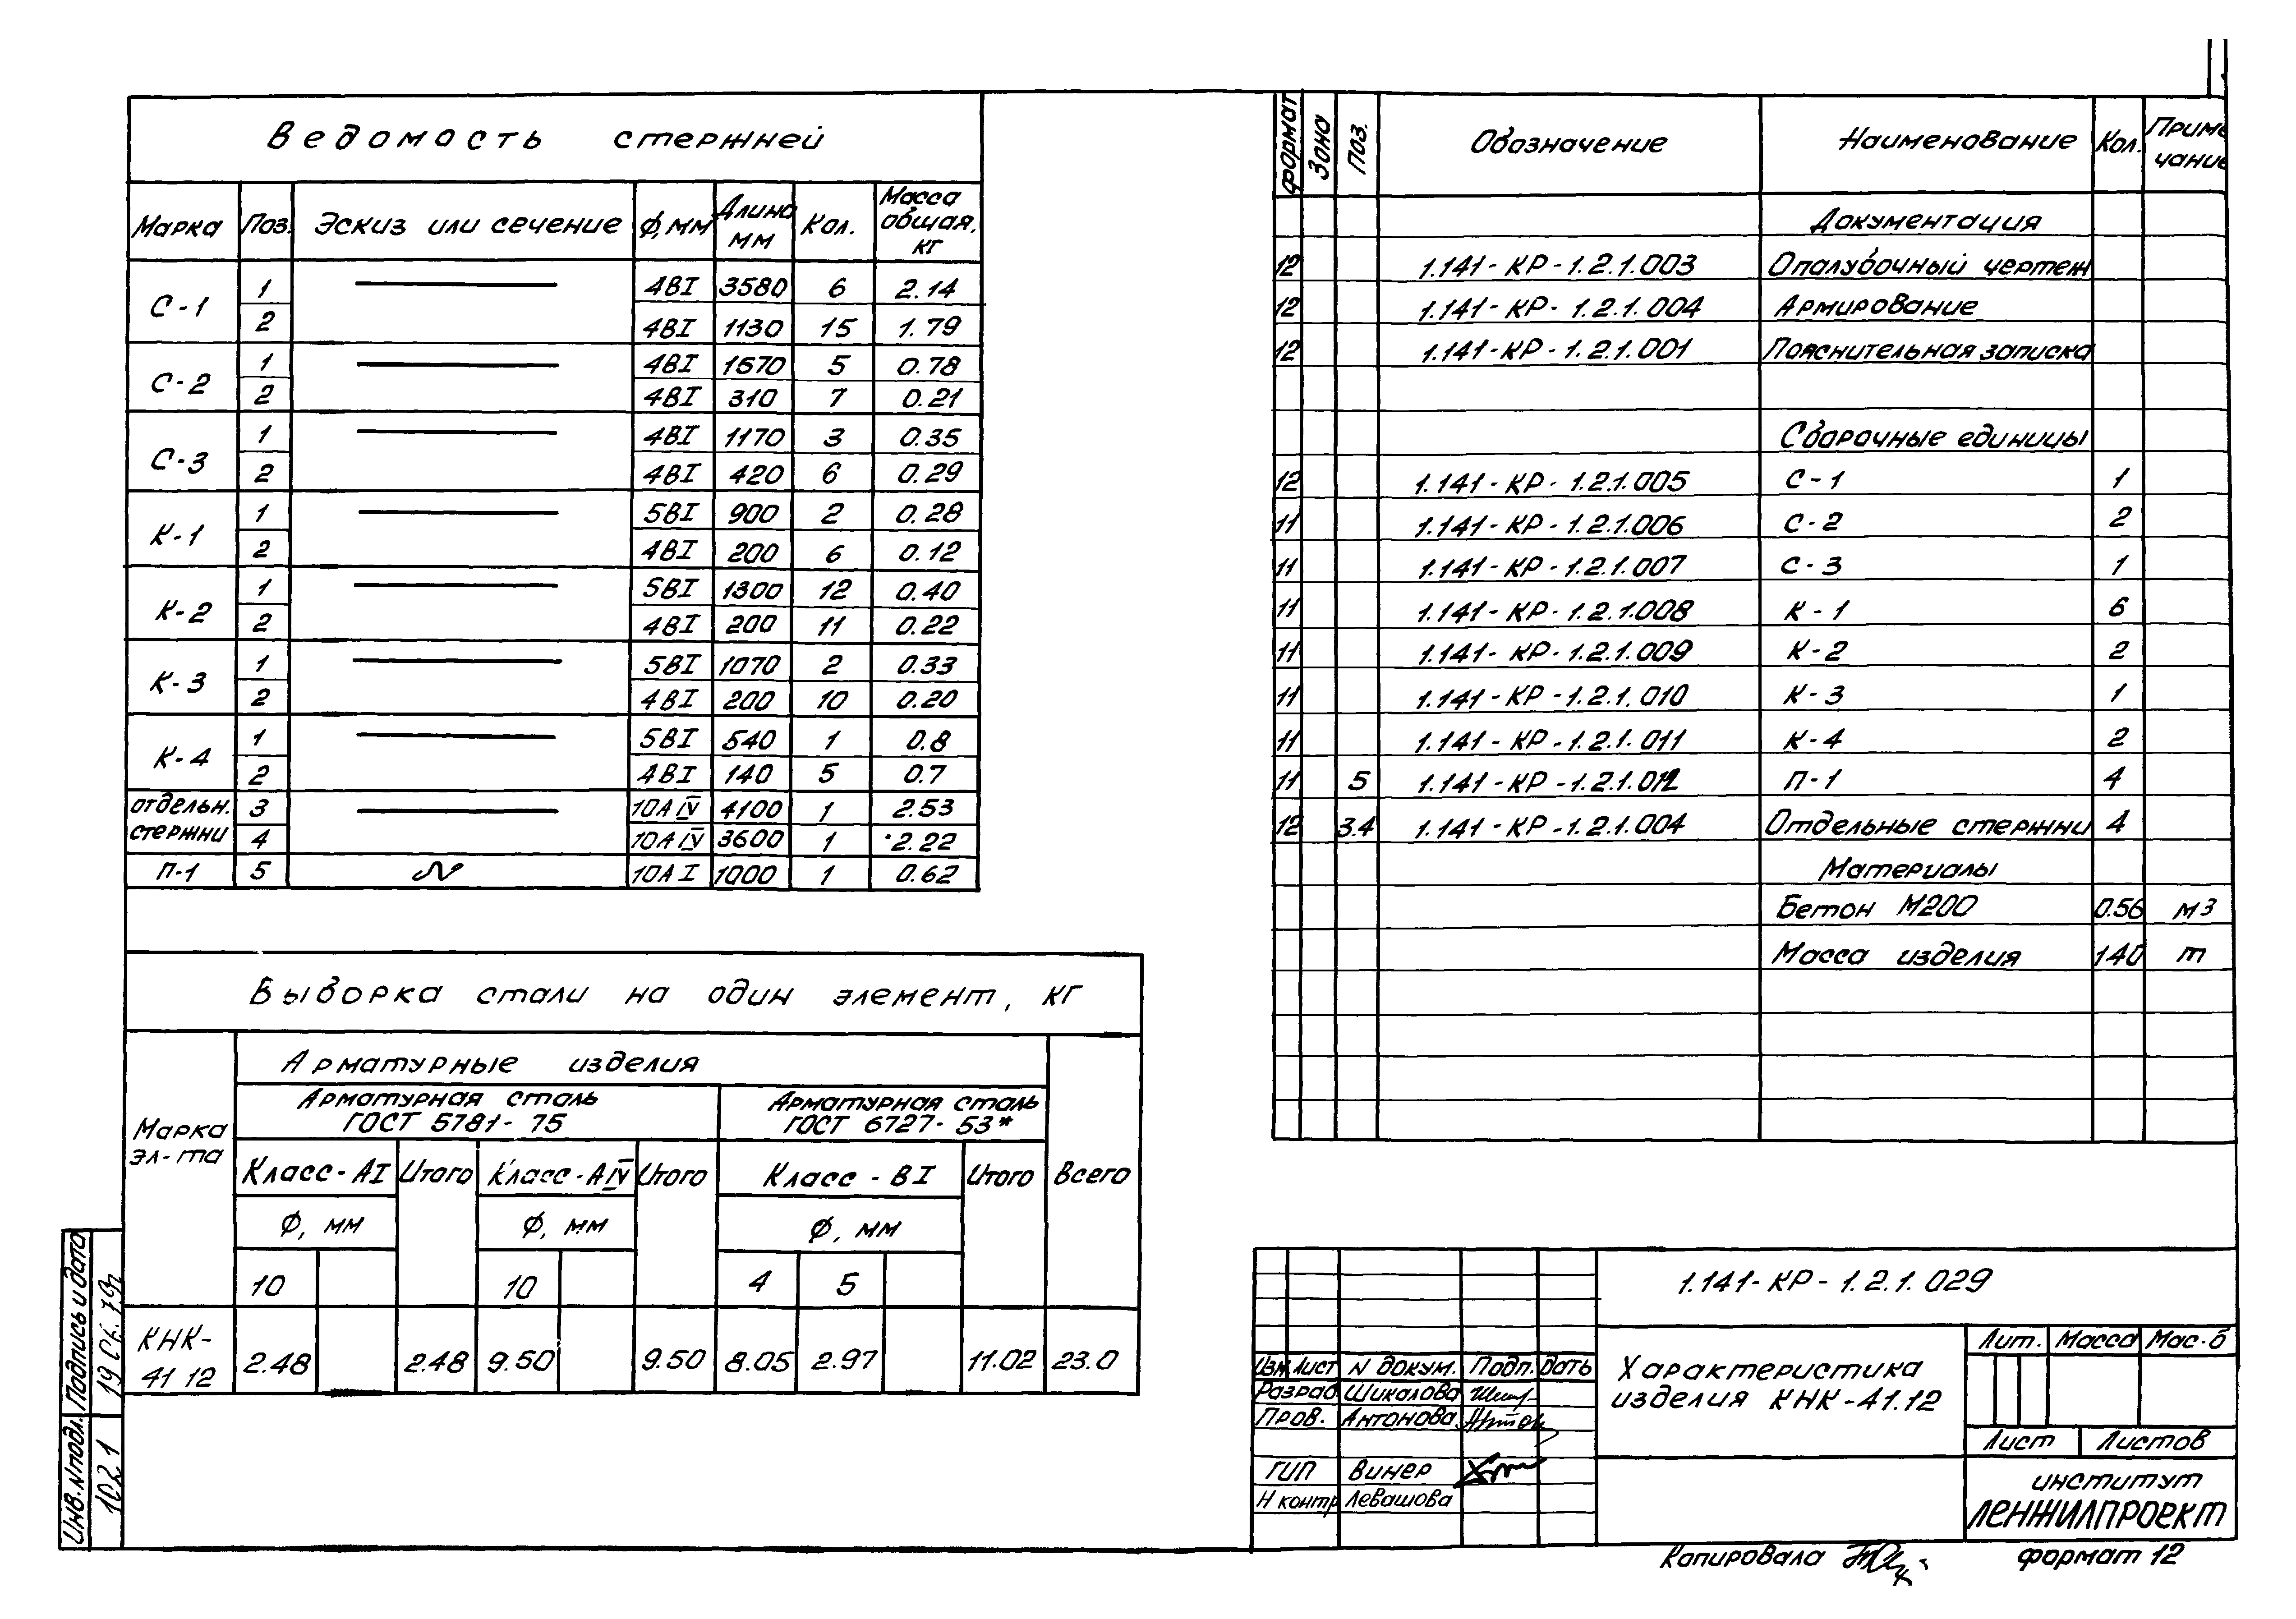 Ведомость стержней
Марка Поз. Эскиз или сечение ф, мм Длина мм Кол. Масса общая, кг
С-1 1 4ВI 3580 6 2.14
2 4ВI 1130 15 1.79
С-2 1 4ВI 1570 5 0.78
2 4ВI 310 7 0.21
С-3 1 4ВI 1170 3 0.35
2 4ВI 420 6 0.29
К-1 1 5ВI 900 2 0.28
2 4ВI 200 6 0.12
К-2 1 5ВI 1300 12 0.40
2 4ВI 200 11 0.22
К-3 1 5ВI 1070 2 0.33
2 4ВI 200 10 0.20
К-4 1 5ВI 540 1 0.8
2 4ВI 140 5 0.7
отдельн. 3 10АIV 4100 1 2.53
стержни 4 10АIV 3600 1 2.22
П-1 5 10АI 1000 1 0.62
Выборка стали на один элемент, кг
Марка эл-та
Арматурные изделия
Арматурная сталь ГОСТ 5781-75
Арматурная сталь ГОСТ 6727-53*
Класс-АI Итого Класс-АIV Итого Класс-ВI Итого Всего
ф, мм ф, мм ф, мм
10 10 4 5
КНК-41 12 2.48 2.48 9.50 9.50 8.05 2.97 11.02 23.0
формат Зона Поз. Обозначение Наименование Кол. Приме
чание
Документация
12 1.141-КР-1.2.1.003 Опалубочный чертеж
12 1.141-КР-1.2.1.004 Армирование
12 1.141-КР-1.2.1.001 Пояснительная записка
Сварочные единицы
12 1.141-КР-1.2.1.005 С-1 1
11 1.141-КР-1.2.1.006 С-2 2
11 1.141-КР-1.2.1.007 С-3 1
11 1.141-КР-1.2.1.008 К-1 6
11 1.141-КР-1.2.1.009 К-2 2
11 1.141-КР-1.2.1.010 К-3 1
11 1.141-КР-1.2.1.011 К-4 2
11 5 1.141-КР-1.2.1.012 П-1 4
12 3.4 1.141-КР-1.2.1.004 Отдельные стержни 4
Материалы
Бетон М200 0.56 м3
Масса изделия 1.40 т
1.141-КР-1.2.1.029
Изм Лист N докум. Подп. дать
Разраб. Шикалова
Пров. Антонова
ГИП Винер
Н контр Левашова
Характеристика
изделия КНК-41.12
Лит. Масса Мас-б
Лист Листов
институт
ЛЕНЖИЛПРОЕКТ
Копировала
формат 12
Инв. N подл. Подпись и дата
1021